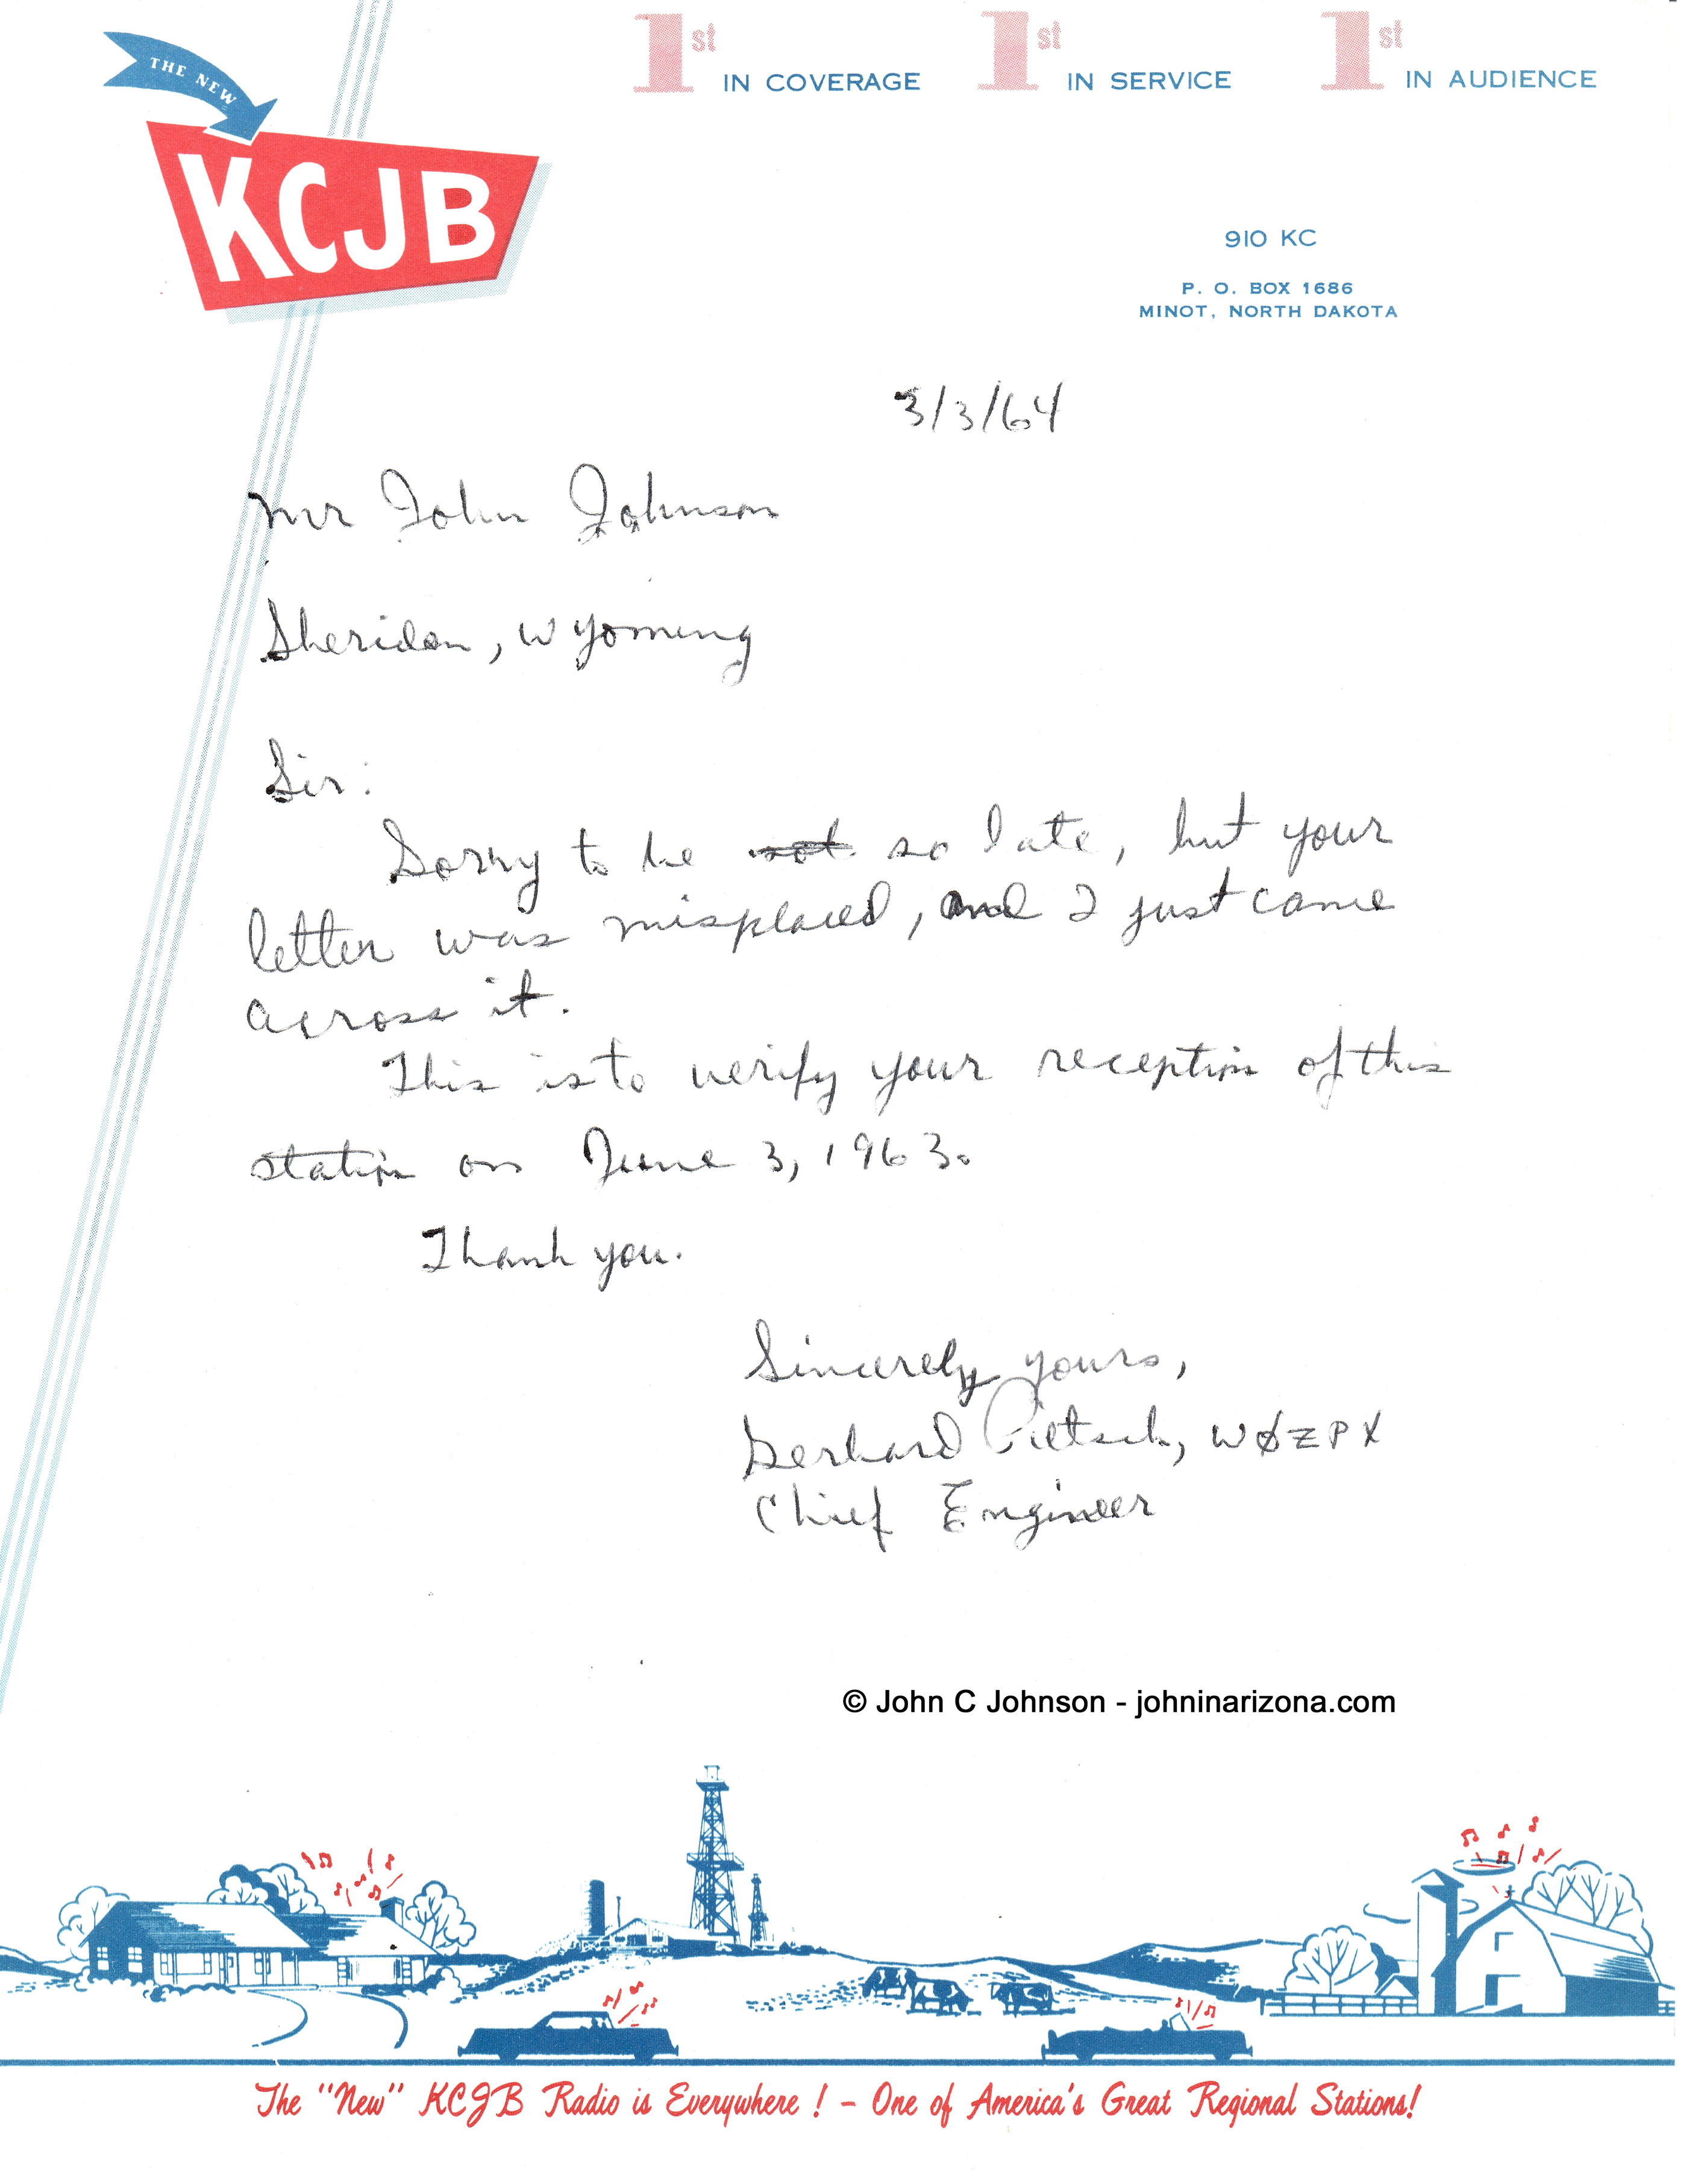 THE NEW
KCJB
1st IN COVERAGE 1st IN SERVICE 1st IN AUDIENCE
910 KC
P. O. BOX 1686
MINOT, NORTH DAKOTA
3/3/64
Mr John Johnson
Sheridan, Wyoming
Sir:
Sorry to be not so late, but your
letter was misplaced, and I just came
across it.
This is to verify your reception of this
station on June 3, 1963.
Thank you.
Sincerely yours,
Gerhard Pietsch, WØZPX
Chief Engineer
© John C Johnson - johninarizona.com
The "New" KCJB Radio is Everywhere! - One of America's Great Regional Stations!